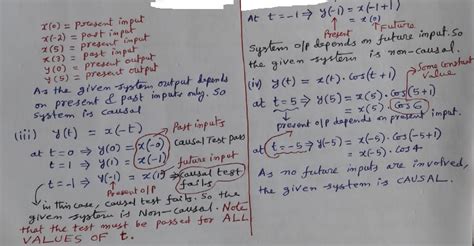 x(0) = present input
x(-2) = past input
x(5) = present input
x(3) = past input
y(0) = present output
y(5) = present output
As the given system output depends
on present & past inputs only. So
system is causal
(iii) y(t) = x(-t)
at t=0 ⇒ y(0) = x(-0)
t=1 ⇒ y(1) = x(-1)
Past inputs
Causal Test pass
future input
t=-1 ⇒ y(-1) = x(1) ⇒ causal test
fails
Present o/p
in this case, causal test fails. So the
given system is Non-causal. Note
that the test must be passed for ALL
VALUES OF t.
At t=-1 ⇒ y(-1) = x(-1+1)
= x(0)
Present
Future
System o/p depends on future input. So
the given system is non-causal.
(iv) y(t) = x(t)·cos(t+1)
Some constant
value
at t=5 ⇒ y(5) = x(5)·cos(5+1)
= x(5)·cos6
present o/p depends on present input.
at t=-5 ⇒ y(-5) = x(-5)·cos(-5+1)
= x(-5)·cos4
As no future inputs are involved,
the given system is CAUSAL.